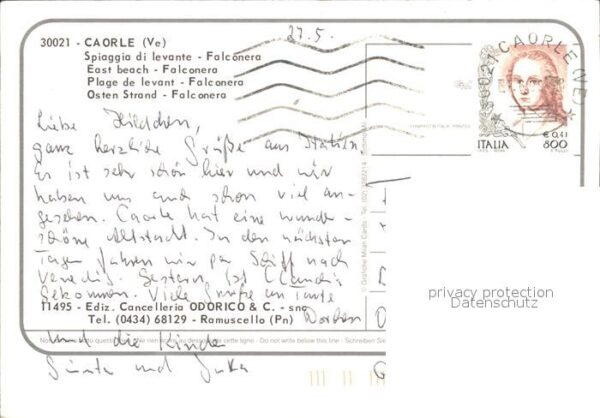 27.5.
30021 - CAORLE (Ve)
Spiaggia di levante - Falconera
East beach - Falconera
Plage de levant - Falconera
Osten Strand - Falconera
30021 CAORLE (VE)
ITALIA
€ 0,41
800
Liebe Hildchen,
ganz herzliche Grüße aus Italien.
Es ist sehr schön hier und wir
haben uns auch schon viel an-
gesehen. Caorle hat eine wunder-
schöne Altstadt. In den nächsten
Tagen fahren wir per Schiff nach
Venedig. Gestern ist Claudia
gekommen. Viele Grüße an Tante
11495 - Ediz. Cancelleria ODORICO & C. - snc
Tel. (0434) 68129 - Ramuscello (Pn)
und die Kinder
und
privacy protection
Datenschutz
Do not write below this line